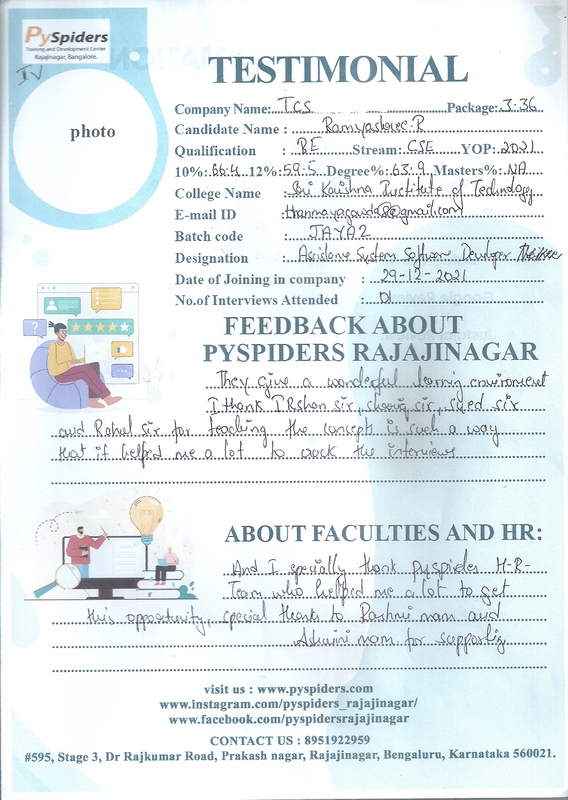 PySpiders
Training and Development Center
Rajajinagar, Bangalore.
IV
TESTIMONIAL
photo
Company Name: TCS Package: 3.36
Candidate Name : Ramyashree.R
Qualification : BE Stream: CSE YOP: 2021
10%: 66.4 12%: 59.5 Degree%: 63.9 Masters%: NA
College Name : Sri Krishna Institute of Technology
E-mail ID : @gmail.com
Batch code : JAYA2
Designation : Assistant System Software Developer Trainee
Date of Joining in company : 29-12-2021
No.of Interviews Attended : 01
FEEDBACK ABOUT
PYSPIDERS RAJAJINAGAR
They give a wonderful learning environment
I thank IRshan sir, sir, syed sir
and Rahul sir for teaching the concept is such a way
that it helped me a lot to crack the interviews
ABOUT FACULTIES AND HR:
And I specially thank pyspider H-R-
Team who helped me a lot to get
this opportunity, special thanks to Rashmi mam and
Ashwini mam for supporting
visit us : www.pyspiders.com
www.instagram.com/pyspiders_rajajinagar/
www.facebook.com/pyspidersrajajinagar
CONTACT US : 8951922959
#595, Stage 3, Dr Rajkumar Road, Prakash nagar, Rajajinagar, Bengaluru, Karnataka 560021.